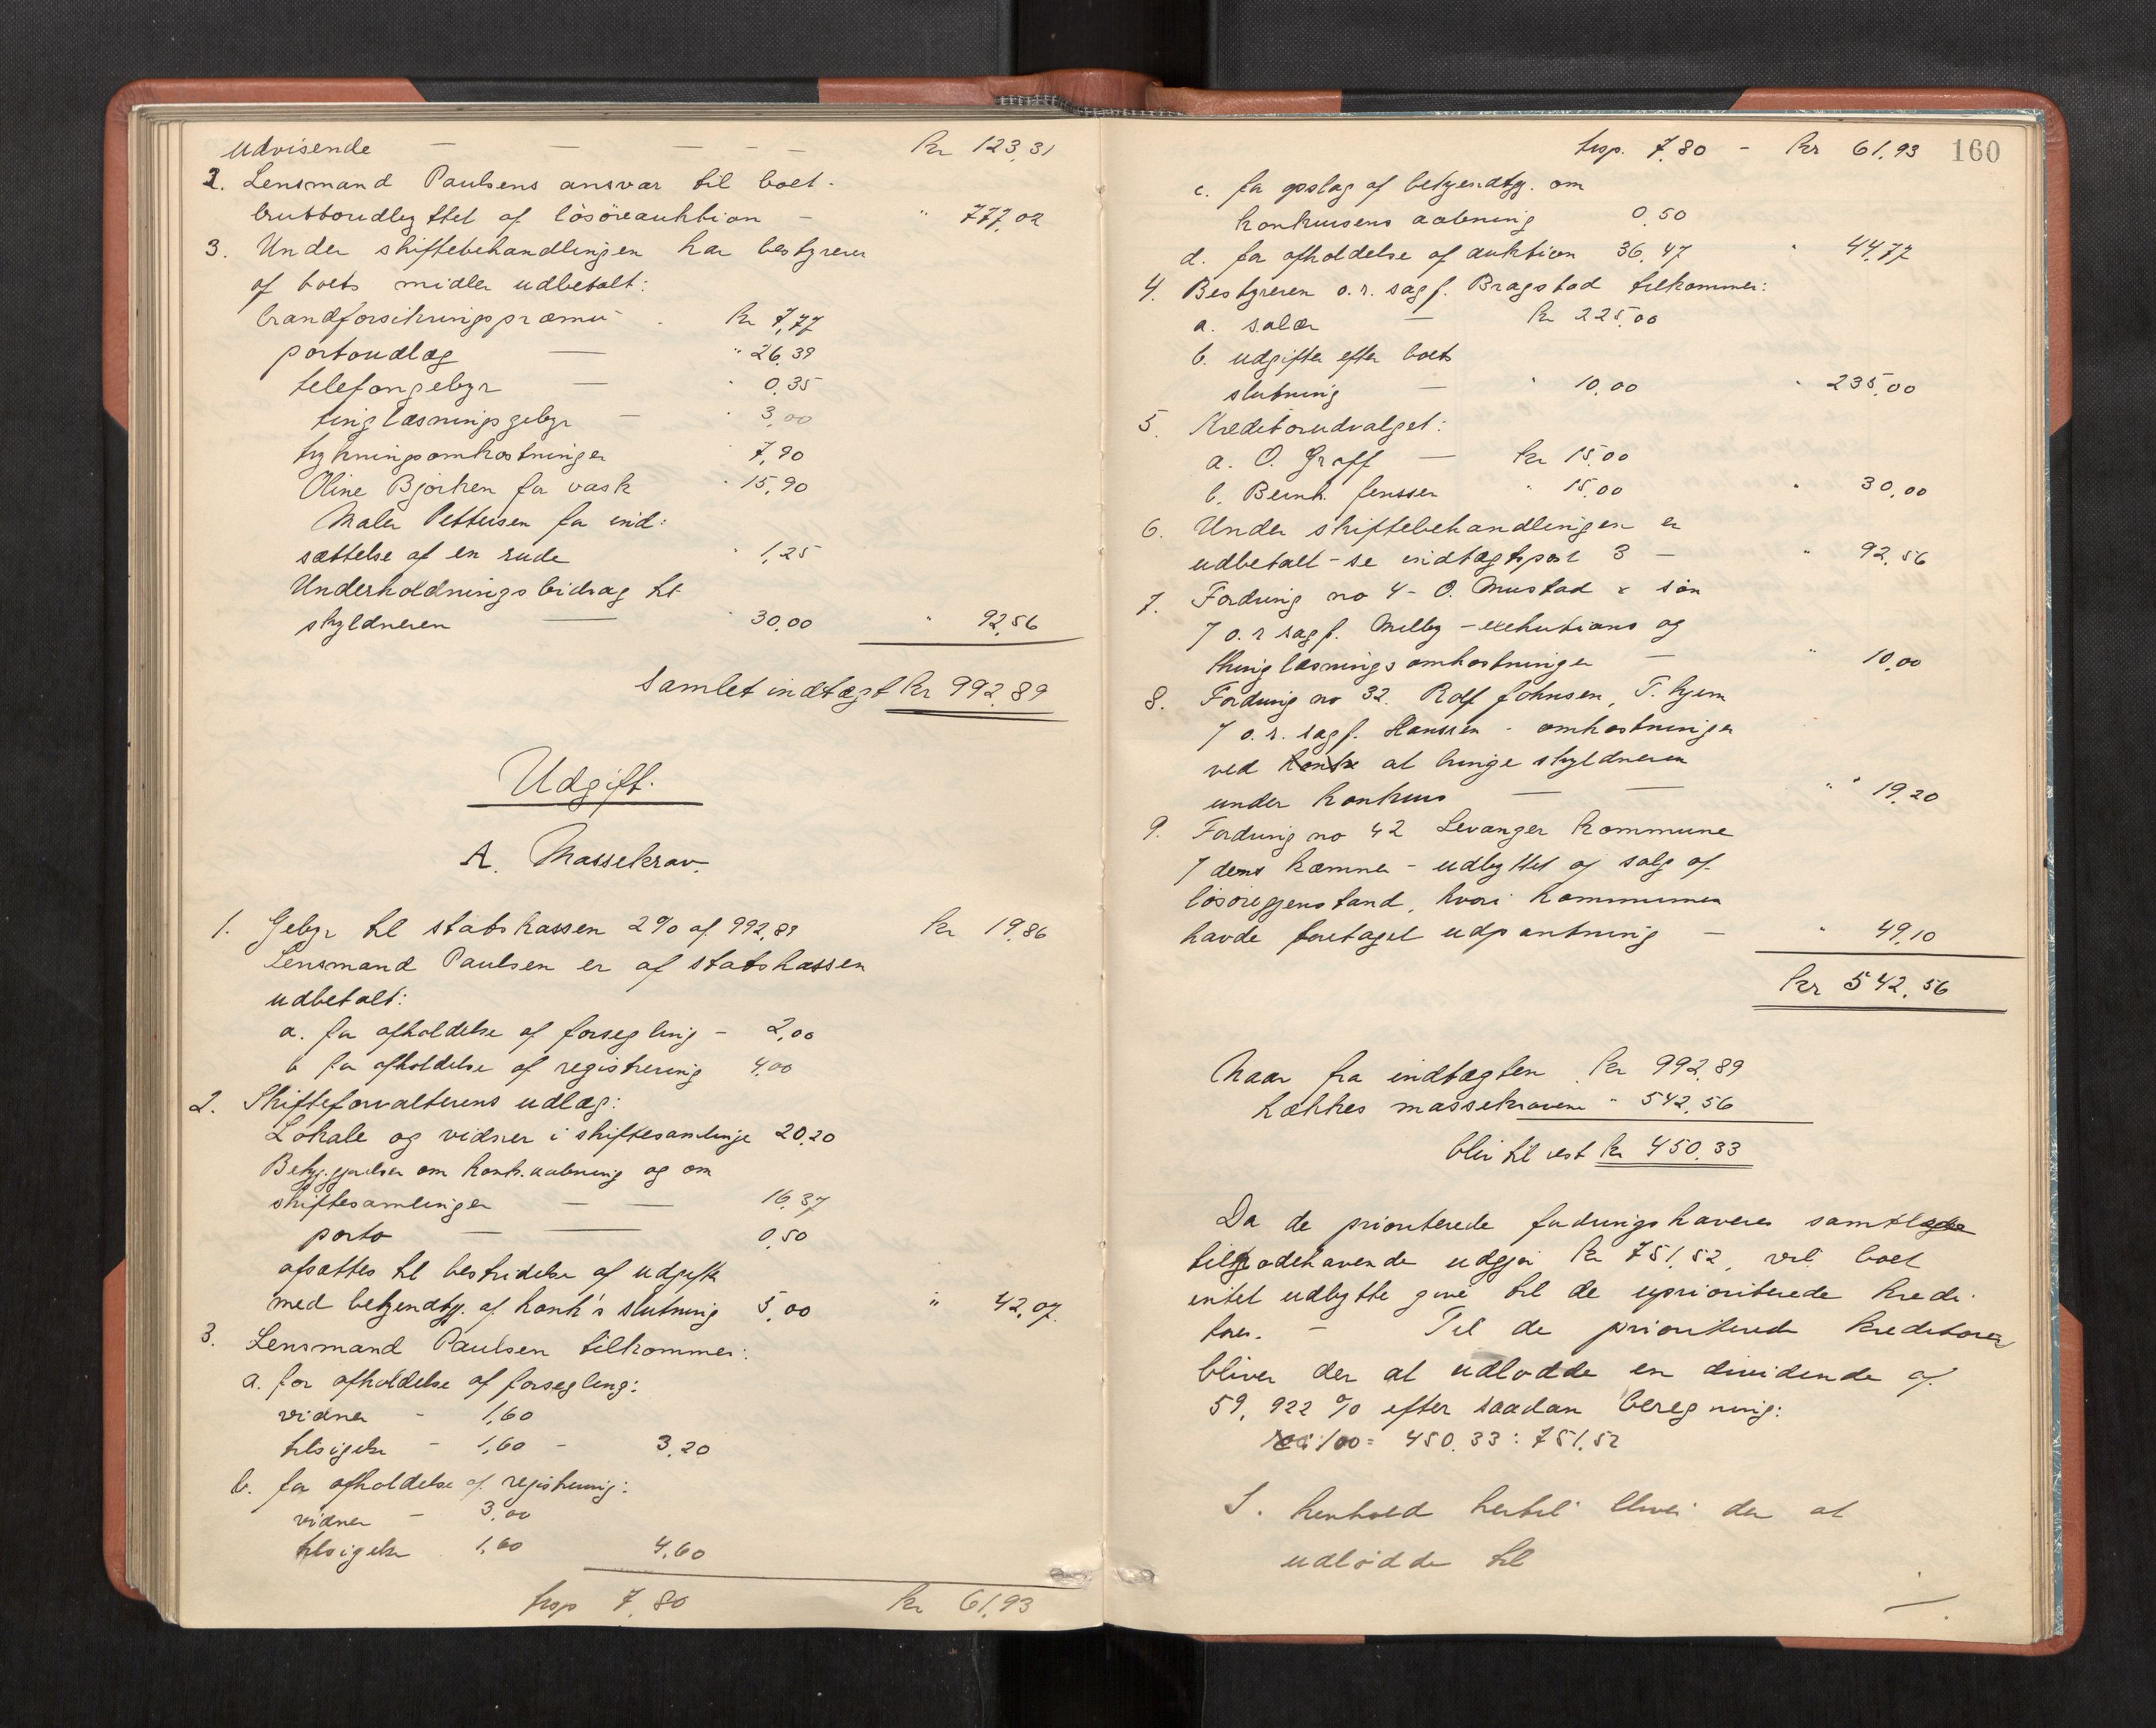 udvisende — — — — — Kr 123,31
2. Lensmand Paulsens ansvar til boet -
bruttoudbyttet af lösöreauktion — " 777,02
3. Under skiftebehandlingen har bestyreren
af boets midler udbetalt:
brandforsikringspræmie - Kr 7,77
portoudlæg — " 26,39
telefongebyr — " 0,35
tinglæsningsgebyr — " 3,00
trykningsomkostninger " 7,90
Oline Bjørken for vask " 15,90
Maler Pettersen for ind:
sættelse af en rude " 1,25
Underholdningsbidrag til
skyldneren — " 30,00 " 92,56
Samlet indtægt Kr 992,89
Udgift.
A. Massekrav.
1. Gebyr til statskassen 2% af 992,89 Kr 19,86
Lensmand Paulsen er af statskassen
udbetalt:
a. for afholdelse af forsegling — 2,00
b for afholdelse af registrering 4,00
2. Skifteforvalterens udlæg:
Lokale og vidner i skiftesamlinge 20,20
om konk.aabning og om
skiftesamlinger — — 16,37
porto — — 0,50
afsættes til bestridelse af udgift
med bekjendtg. af konk's slutning 5,00 " 42,07
3. Lensmand Paulsen tilkommer:
a. for afholdelse af forsegling:
vidner - 1,60
tilsigelse - 1,60 - 3,20
b. for afholdelse af registrering:
vidner - 3,00
tilsigelse 1,60 4,60
trsp 7,80 Kr 61,93
trsp. 7,80 - Kr 61,93 160
c. for opslag af bekjendtg. om
konkursens aabning 0,50
d. for afholdelse af auktion 36,47 " 44,77
4. Bestyreren o.r. sagf. Bragstad tilkommer:
a. salær — Kr 225,00
b. udgifter efter boets
slutning — " 10,00 " 235,00
5. Kreditorudvalget:
a. O. Graff — Kr 15,00
b. Bernh. Jenssen " 15,00 " 30,00
6. Under skiftebehandlingen er
udbetalt - se indtægtspost 3 — " 92,56
7. Fordring no 4 - O. Mustad & søn
/ o.r sagf. Melby - exekutions og
thinglæsningsomkostninger — " 10,00
8. Fordring no 32. Rolf Johnsen, T.hjem
/ o.r. sagf. Hanssen - omkostninger
ved at bringe skyldneren
under konkurs — — " 19,20
9. Fordring no 42 Levanger Kommune
/ dens kæmner - udbyttet af salg af
lösöregjenstand, hvori kommunen
havde foretaget udpantning — " 49,10
Kr 542,56
Naar fra indtægten Kr 992,89
trækkes massekravene " 542,56
blir til rest Kr 450,33
Da de prioriterede fordringshaveres
tilgodehavende udgjør Kr 751,52, vil boet
intet udbytte give til de uprioriterede kredi-
torer. — Til de prioriterede kreditorer
bliver der at udlodde en dividende af
59,922 % efter saadan beregning:
100 = 450,33 : 751,52
I henhold hertil bliver der at
udlodde til